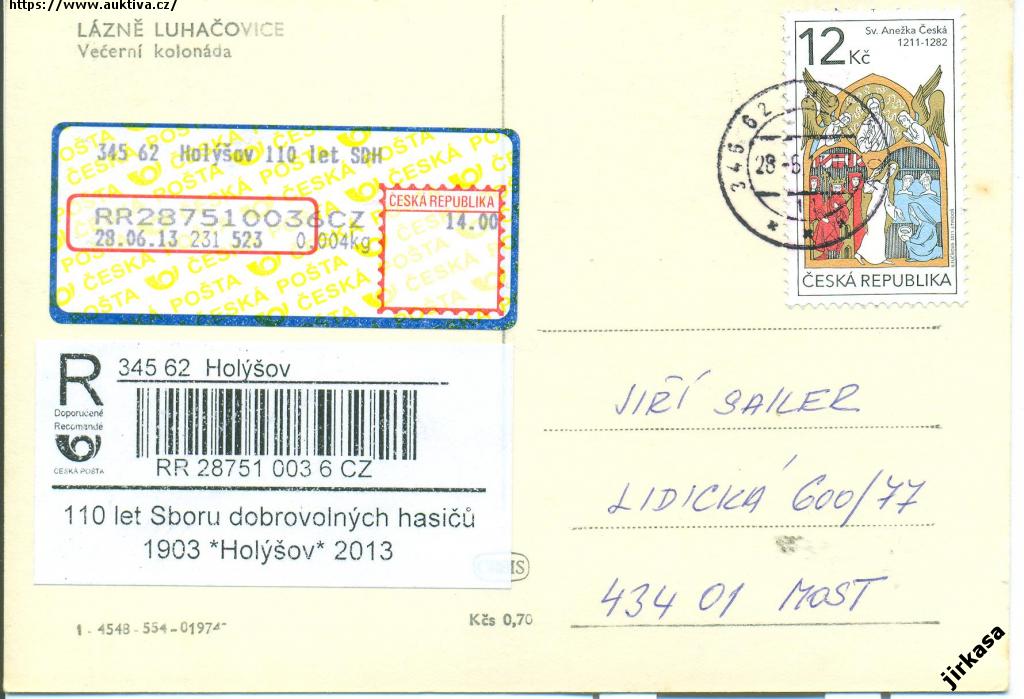 https://www.auktiva.cz/
LÁZNĚ LUHAČOVICE
Večerní kolonáda
Sv. Anežka Česká
1211-1282
12 Kč
ČESKÁ REPUBLIKA
346 62
28
345 62 Holýšov 110 let SDH
ČESKÁ REPUBLIKA
14.00
RR287510036CZ
28.06.13 231 523 0,004kg
ČESKÁ POŠTA
R
Doporučené
Recomandé
ČESKÁ POŠTA
345 62 Holýšov
RR 28751 003 6 CZ
110 let Sboru dobrovolných hasičů
1903 *Holýšov* 2013
JIŘÍ SAILER
LIDICKÁ 600/77
434 01 MOST
Kčs 0,70
jirkasa